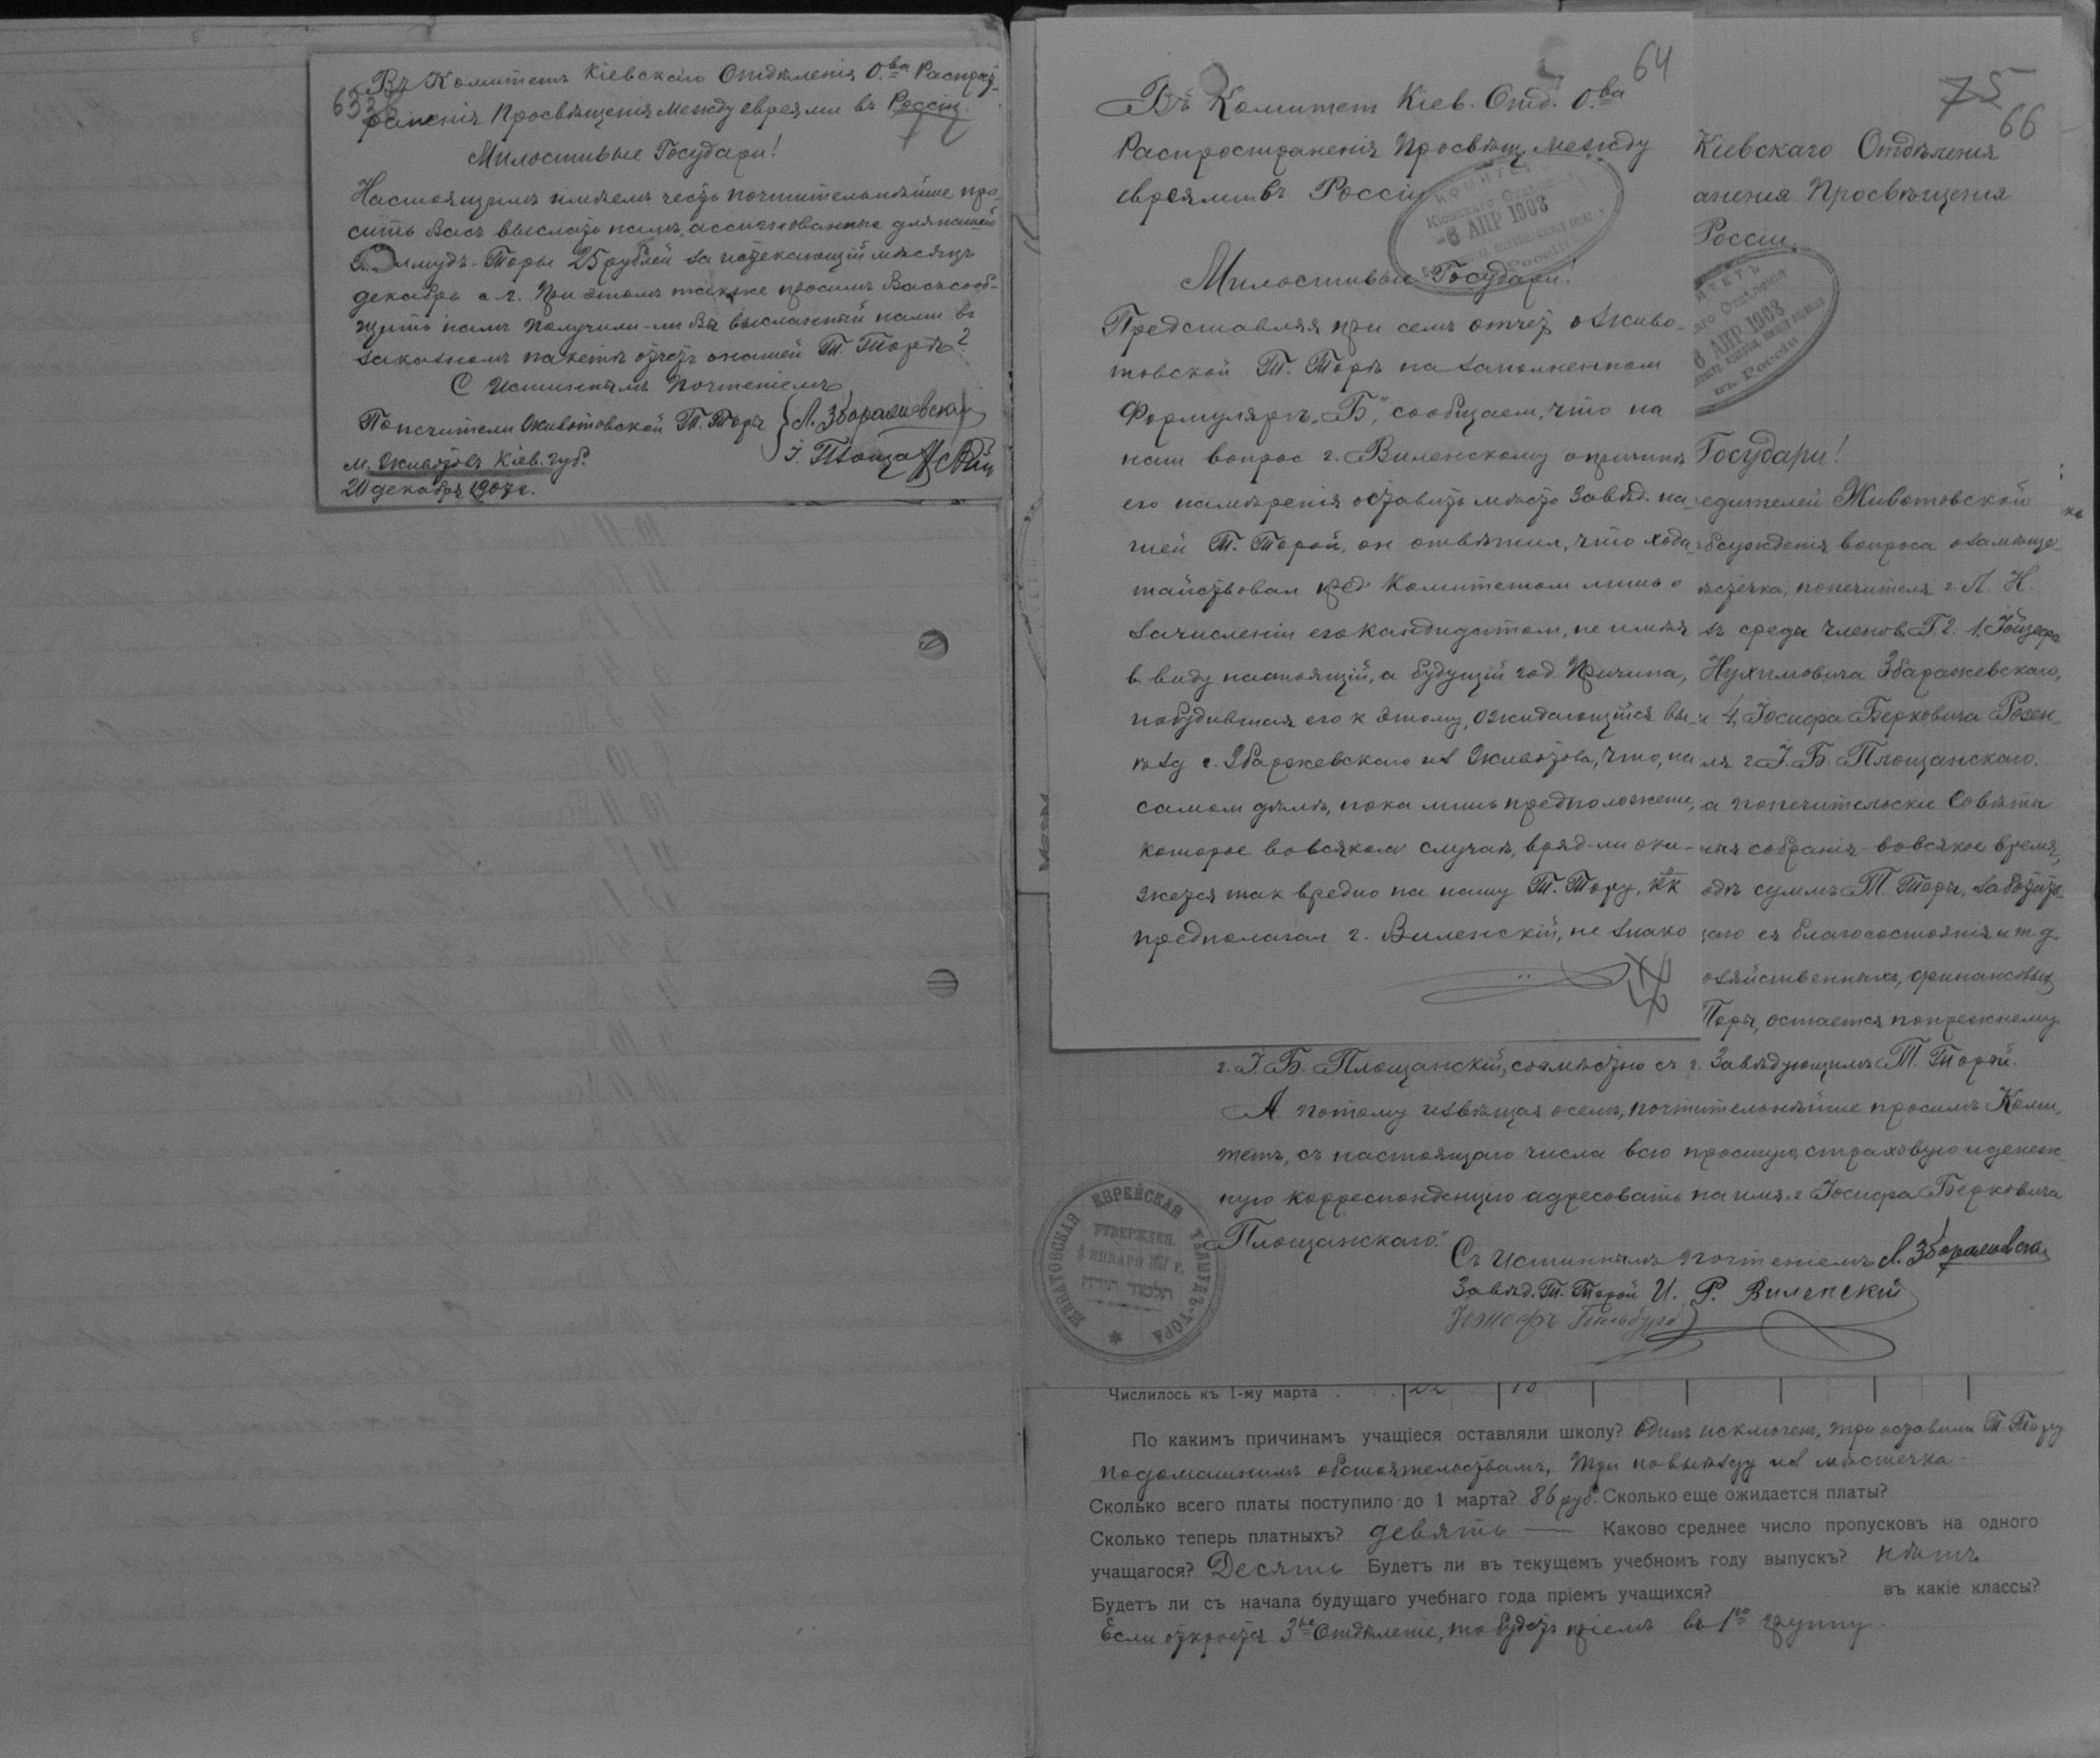 Въ Комитетъ Кіевскаго Отдѣленія О.ва Распрост-
раненія Просвѣщенія между евреями въ Россіи.
Милостивые Государи!
Настоящимъ имѣемъ честь почтительнѣйше про-
сить Васъ выслать намъ, ассигнованные для нашей
Талмудъ-Торы 25 рублей за истекающій мѣсяцъ
декабрь с. г. При этомъ также просимъ Васъ сооб-
щить намъ получили-ли Вы высланный нами въ
заказномъ пакетѣ отчетъ о нашей Т. Торѣ?
С истиннымъ почтеніемъ
Попечители Животовской Т. Торы
Л. Збаражевскій
м. Животовъ Кіев. губ.
20 декабря 1907 г.
64
Въ Комитет Кіев. Отд. О.ва
Распространенія Просвѣщ. между
евреями въ Россіи
8 АПР 1908
Милостивые Государи!
Представляя при семъ отчет о Живо-
товской Т. Торѣ на заполненном
Формулярѣ „Б“, сообщаем, что на
наш вопрос г. Виленскому о причинѣ
его намѣренія оставить мѣсто Завѣд. на-
шей Т. Торой, он отвѣтил, что хода-
тайствовал пред Комитетом лишь о
зачисленіи его кандидатом, не имѣя
в виду настоящій, а будущій год. Причина,
побудившая его к этому, ожидающійся вы-
ѣзд г. Збаражевскаго из Животова, что, на
самом дѣлѣ, пока лишь предположеніе,
которое во всяком случаѣ, вряд-ли ока-
жется так вредно на нашу Т. Тору, как
предполагал г. Виленскій, не знако
75
66
Кіевскаго Отдѣленія
аненія Просвѣщенія
Россіи.
8 АПР 1908
Государи!
едителей Животовской
бсужденія вопроса о замѣще
ѣстечка, попечителя г. Л. Н.
зъ среды членовъ
Нухимовича Збаражевскаго,
и 4, Іосифа Берковича Розен-
ля г. І. Б. Площанскаго.
а попечительскіе Совѣты
ыя собранія во всякое время,
одъ суммъ Т. Торы,
щаго ея благосостоянія и т. д.
озяйственныхъ, финансовых
Торы, остается попрежнему
г. І. Б. Площанскій, совмѣстно съ г. Завѣдующимъ Т. Торой.
А потому извѣщая о семъ, почтительнѣйше просимъ Коми-
тетъ, съ настоящаго числа всю простую, страховую и денеж-
ную корреспонденцію адресовать на имя г. Іосифа Берковича
Площанскаго."
Съ истиннымъ почтеніемъ Л. Збаражевскій
Завѣд. Т. Торой И. Р. Виленскій
ЖИВАТОВСКАЯ ЕВРЕЙСКАЯ ТАЛМУДЪ-ТОРА
УТВЕРЖДЕН.
ЯНВАРЯ
תלמוד תורה
Числилось къ 1-му марта . . 22 10
По какимъ причинамъ учащіеся оставляли школу? Одинъ исключенъ, три оставили Т. Тору
по домашнимъ обстоятельствамъ, три по выѣзду из мѣстечка
Сколько всего платы поступило до 1 марта? 86 руб. Сколько еще ожидается платы?
Сколько теперь платныхъ? девять — Каково среднее число пропусковъ на одного
учащагося? Десять Будетъ ли въ текущемъ учебномъ году выпускъ? нѣтъ
Будетъ ли съ начала будущаго учебнаго года пріемъ учащихся? въ какіе классы?
Если откроется 3ье Отдѣленіе, то будетъ пріемъ въ 1ую группу.